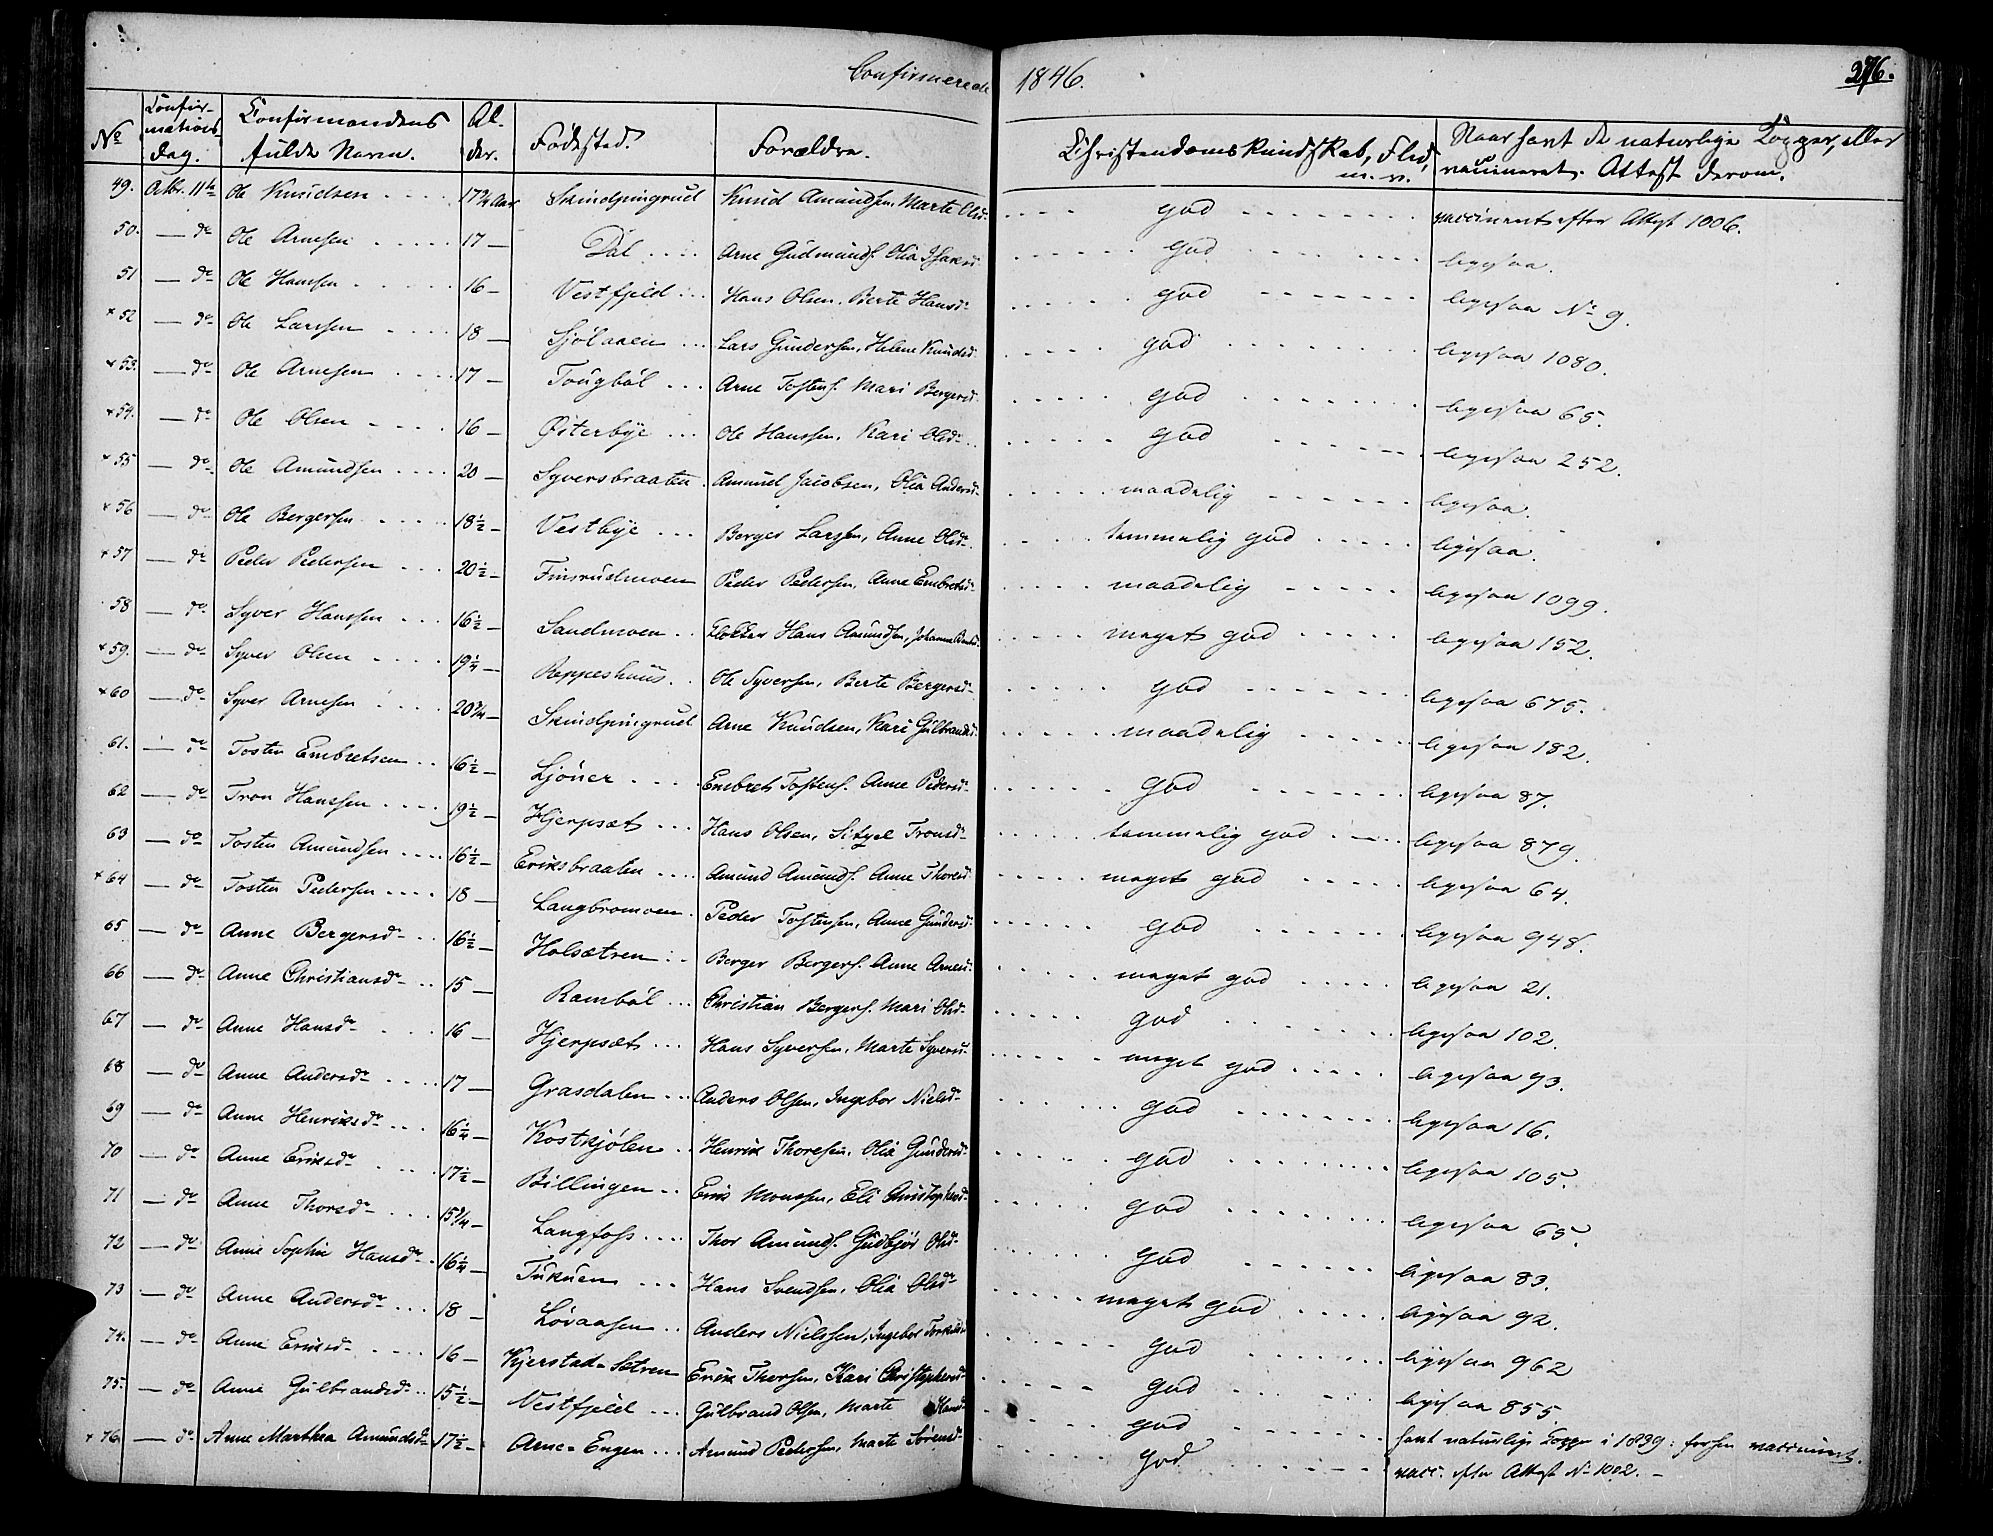 Confirmerede 1846. 276.
No Confirmations Dag. Confirmandens fulde Navn. Alder. Fødested. Forældre. Christendoms Kundskab, Flid, m. v. Naar havt de naturlige Kopper, eller vaccineret. Attest derom.
49. Okt. 11te Ole Knudsen 17¾ Aar Skindpingrud Knud Amundsen, Marte Olsd. god vaccineret efter Attest 1006.
50. — do Ole Arnesen 17 — Dal Arne Gudmunds. Olia god ligesaa.
51 — do Ole Hanssen 16 — Vestfjeld Hans Olsen. Berte Hansd. god ligesaa No 9.
× 52 — do Ole Larssen 18 — Sjølaaen Lars Gundersen, Helene Knudsd. god ligesaa 1080.
× 53. — do Ole Arnesen 17 — Tougbøl Arne Tostens. Mari Bergersd. god ligesaa 65.
× 54. — do Ole Olsen 16 — Østerbye Ole Hanssen, Kari Olsd. god ligesaa 252.
× 55 — do Ole Amundsen 20 — Syversbraaten Amund Jacobsen, Olia Andersd. maadelig ligesaa.
× 56 — do Ole Bergersen 18½ — Vestbye Berger Larssen, Anne Olsd. temmelig god ligesaa.
× 57 — do Peder Pedersen 20½ — Finsrudmoen Peder Pedersen, Anne Embretsd. maadelig ligesaa 1099.
58 — do Syver Hanssen 16½ — Sandmoen Klokker Hans Amundsen, Johanne meget god ligesaa 152.
× 59. — do Syver Olsen 19¼ — Reppeshuus Ole Syversen, Berte Bergersd. god ligesaa 675.
× 60 — do Syver Arnesen 20¾ — Skindpingrud Arne Knudsen, Kari Gulbrandsd. maadelig ligesaa 182.
61. — do Tosten Embretsen 16½ — Ljøner Embret Tostens. Anne Pedersd. god ligesaa 87.
62 — do Tron Hanssen 19½ — Hjerpsæt Hans Olsen, Sitzel Tronsd. temmelig god ligesaa 879.
63 — do Tosten Amundsen 16½ — Eriksbraaten Amund Amunds. Anne Thoresd. meget god ligesaa 64.
× 64 — do Tosten Pedersen 18 — Langbromoen Peder Tostensen, Anne Gundersd. god ligesaa 948.
65 — do Anne Bergersd. 16½ — Holsætren Berger Bergers. Anne Arnesd. meget god ligesaa 21.
66 — do Anne Christiansd. 15 — Rambøl Christian Bergers. Mari Olsd. god ligesaa 102.
67 — do Anne Hansd. 16 — Hjerpsæt Hans Syversen, Marte Syversd. meget god ligesaa 93.
68 — do Anne Andersd. 17 — Grasdalen Anders Olsen, Ingebor Nielsd. god ligesaa 16.
69 — do Anne Henriksd. 16¼ — Kostkjølen Henrik Thoresen, Olia Gundersd. god ligesaa 105.
70 — do Anne Eriksd. 17½ — Billingen Erik Monssen, Eli Christophersd. god ligesaa 65.
71 — do Anne Thorsd. 15¾ — Langfoss Thor Amunds. Gudbjør Olsd. god ligesaa 83.
72 — do Anne Sophie Hansd. 16¼ — Tukuen Hans Svendsen, Olia Olsd. meget god ligesaa 92.
73 — do Anne Andersd. 18 — Løvaasen Anders Nielssen, Ingebor god ligesaa 962
74. — do Anne Eriksd. 16 — Kjerstad-Setren Erik Thorsen, Kari Christophersd. god ligesaa 855
75. — do Anne Gulbrandsd. 15½ — Vestfjeld Gulbrand Olsen, Marte Hansd. god havt naturlige Kopper i 1839: forhen vaccineret.
× 76. — do Anne Marthea Amundsd. 17½ — Arne-Engen Amund Pedersen, Marte Sørensd. god vacc. efter Attest No 1002. —